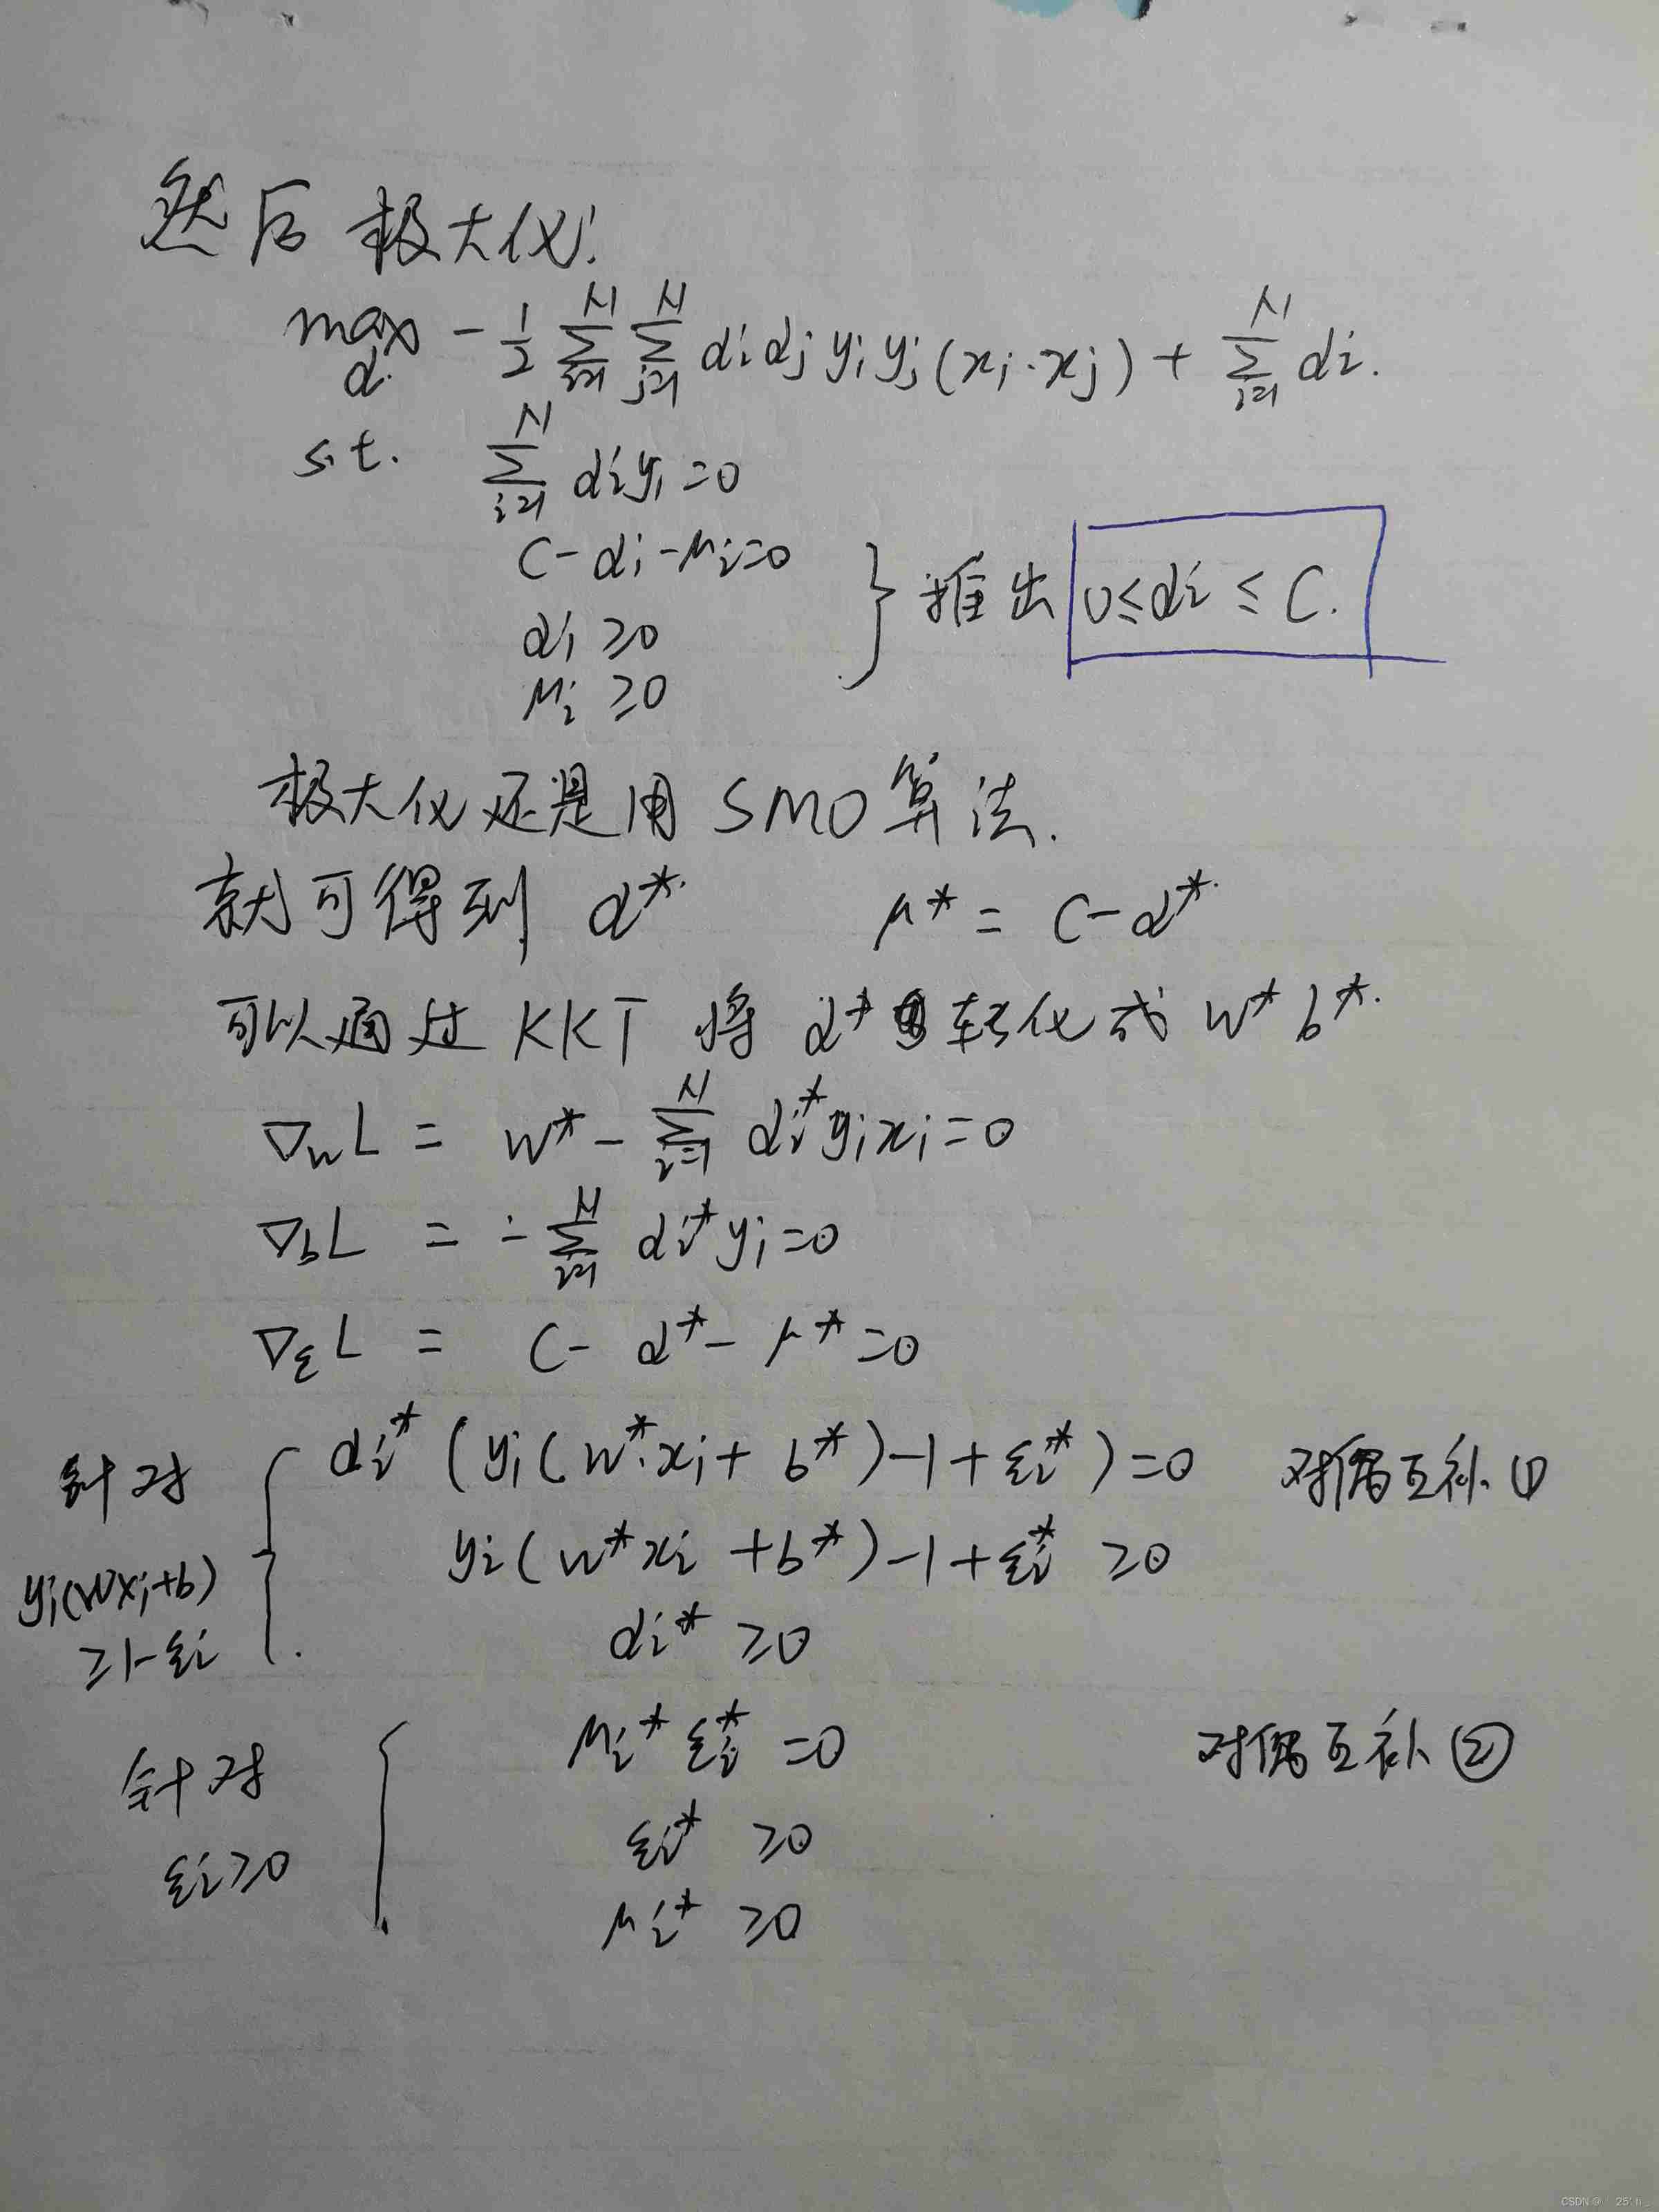 然后极大化:
max α - 1/2 ∑_{i=1}^{N} ∑_{j=1}^{N} αi αj yi yj (xi · xj) + ∑_{i=1}^{N} αi.
s.t. ∑_{i=1}^{N} αi yi = 0
C - αi - μi = 0
αi ≥ 0
μi ≥ 0
} 推出 0 ≤ αi ≤ C.
极大化还是用 SMO 算法.
就可得到 α* μ* = C - α*
可以通过 KKT 将 α* 转化成 w* b*.
∇wL = w* - ∑_{i=1}^{N} αi* yi xi = 0
∇bL = - ∑_{i=1}^{N} αi* yi = 0
∇ξL = C - α* - μ* = 0
针对 yi(wxi+b) ≥ 1-ξi {
αi* (yi(w*·xi + b*) - 1 + ξi*) = 0 对偶互补 ①
yi(w*xi + b*) - 1 + ξi* ≥ 0
αi* ≥ 0
针对 ξi ≥ 0 {
μi* ξi* = 0 对偶互补 ②
ξi* ≥ 0
μi* ≥ 0